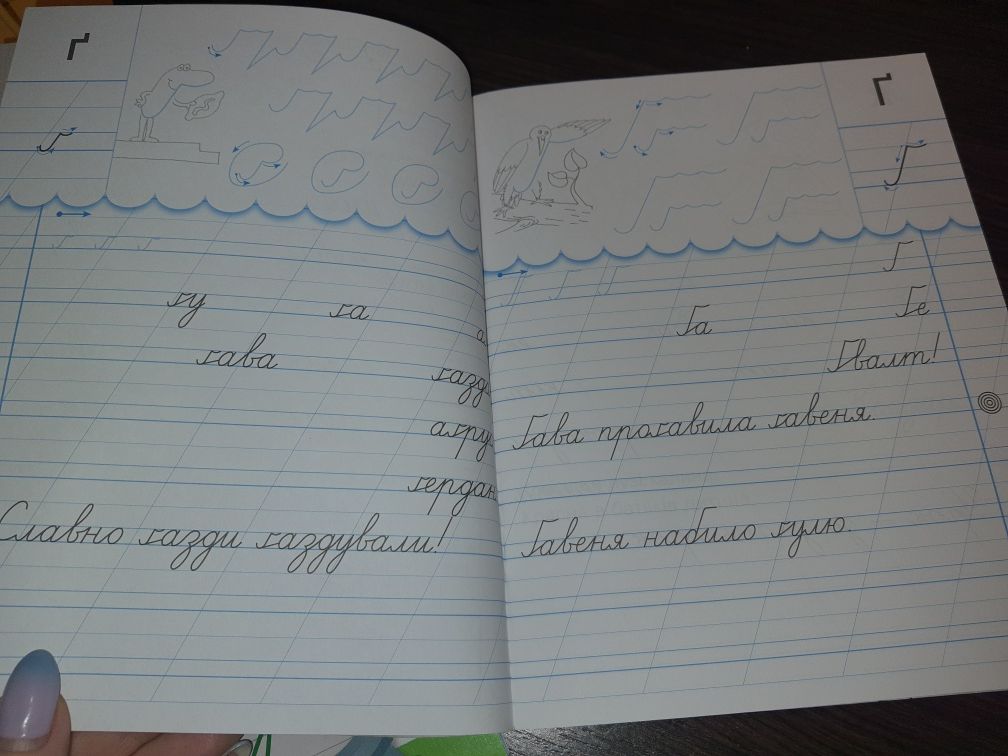 ґ
ґ
ґ ґ ґ
ґу ґа а
ґава ґазд
аґру
ґердан
Славно ґазди ґаздували!
Ґ
Ґ
Ґ Ґ Ґ Ґ
Ґа Ґе
Ґвалт!
Ґава проґавила ґавеня.
Ґавеня набило ґулю.